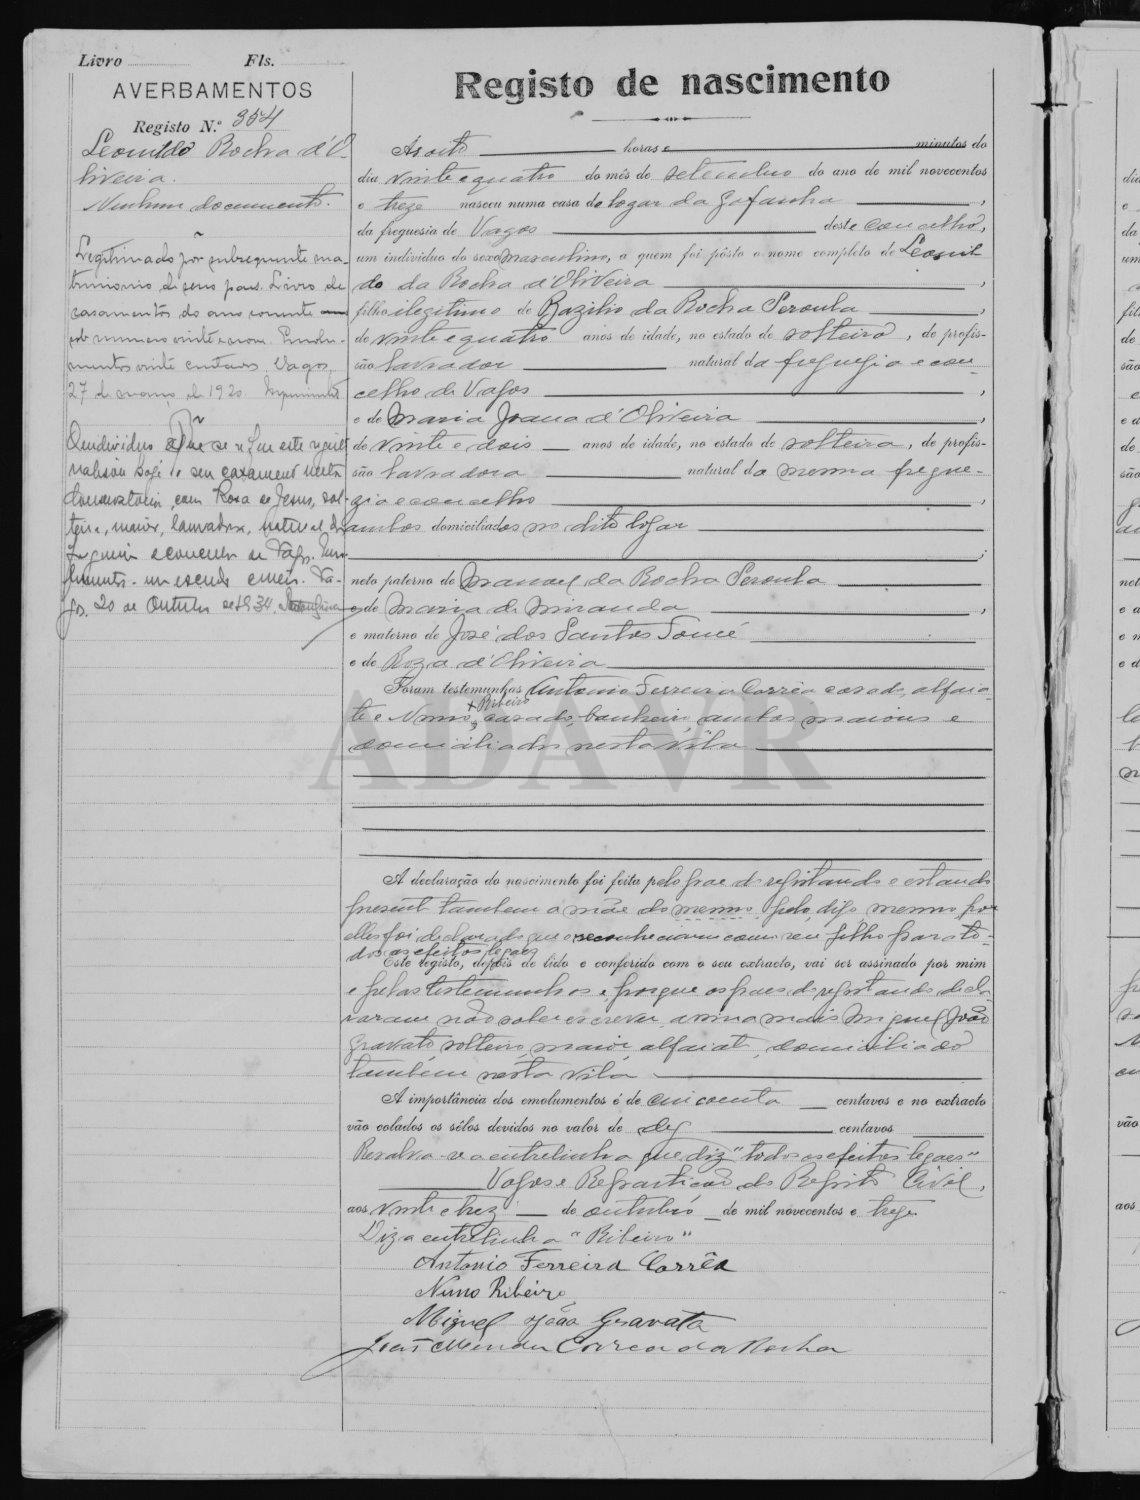 Livro Fls.
AVERBAMENTOS
Registo N.º 354
Leonildo Rocha d'O-
liveira.
Nenhum documento.
Legitimado por subsequente ma-
trimonio de seus paes. Livro de
casamentos do ano corrente
sob numero vinte e nove. Emolu-
mentos vinte centavos. Vagos,
27 de março de 1920.
O individuo a que se refere este registo
realisou hoje o seu casamento nesta
Conservatoria, com Rosa de Jesus, sol-
teira, maior, lavradora, natural da
freguesia e concelho de Vagos. Emo-
lumentos - um escudo e meio. Va-
gos, 20 de Outubro de 1934.
Registo de nascimento
Às oito horas e minutos do
dia vinte e quatro do mês de setembro do ano de mil novecentos
e treze nasceu numa casa do logar da Gafanha ,
da freguesia de Vagos deste concelho,
um indivíduo do sexo masculino, a quem foi pôsto o nome completo de Leonil
do da Rocha d'Oliveira ,
filho ilegitimo de Bazilio da Rocha Seroula ,
de vinte e quatro anos de idade, no estado de solteiro, de profis-
são lavrador natural da freguezia e con-
celho de Vagos ,
e de Maria Joana d'Oliveira ,
de vinte e dois anos de idade, no estado de solteira, de profis-
são lavradora natural da mesma fregue-
zia e concelho ,
ambos domiciliados no dito logar
;
neto paterno de Manoel da Rocha Seroula
e de Maria de Miranda ,
e materno de José dos Santos Tomé
e de Roza d'Oliveira
Foram testemunhas Antonio Ferreira Corrêa casado, alfaia
+ Ribeiro
te e Nuno, casado, banheiro, ambos maiores e
domiciliados nesta vila
A declaração do nascimento foi feita pelo pae do registando e estando
presente tambem a mãe do mesmo, pelo, digo, mesmo, por
elles foi declarado que o reconheciam como seu filho para to-
dos os efeitos legaes
Este registo, depois de lido e conferido com o seu extracto, vai ser assinado por mim
e pelas testemunhas e porque os paes do registando decla-
raram não saber escrever, assina mais Miguel João
Gravato, solteiro, maior, alfaiate, domiciliado
tambem nesta vila
A importância dos emolumentos é de cincoenta centavos e no extracto
vão colados os sêlos devidos no valor de dez centavos
Resalva-se a entrelinha que diz "todos os efeitos legaes"
Vagos e Repartição do Registo Civil,
aos vinte e trez de outubro de mil novecentos e treze.
Diz a entrelinha "Ribeiro"
Antonio Ferreira Corrêa
Nuno Ribeiro
Miguel João Gravato
João Mendes Correa da Rocha
ADAVR